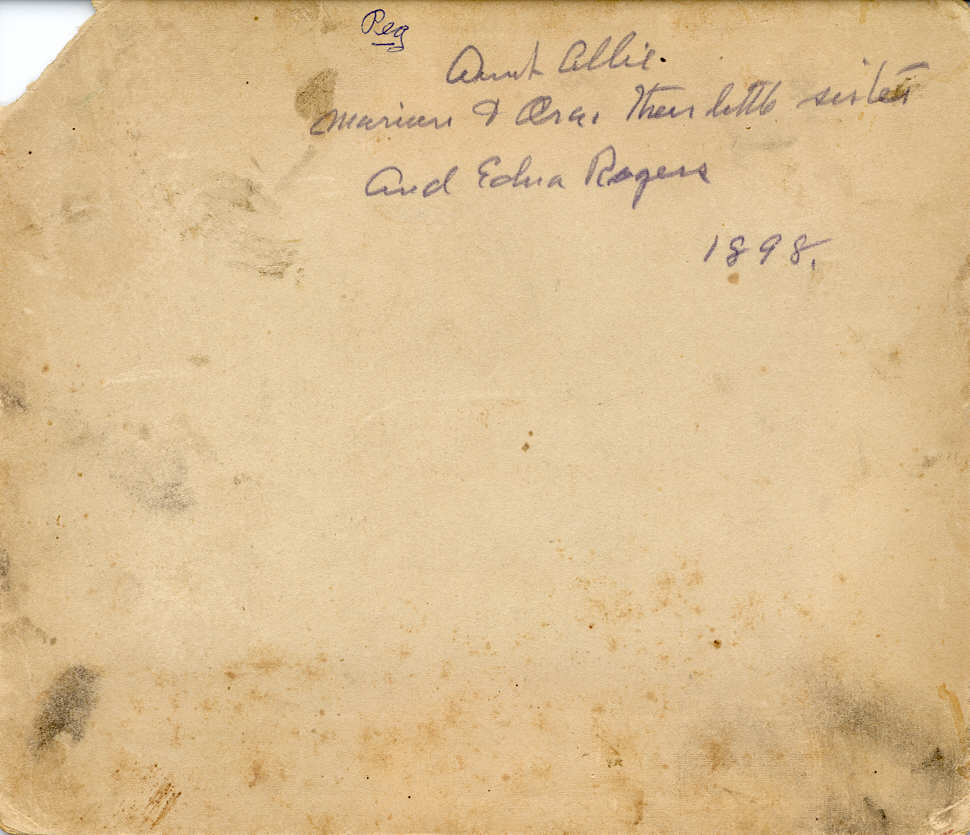 Peg
Aunt Allie.
& Ora. Their little sister
And Edna Rogers
1898.